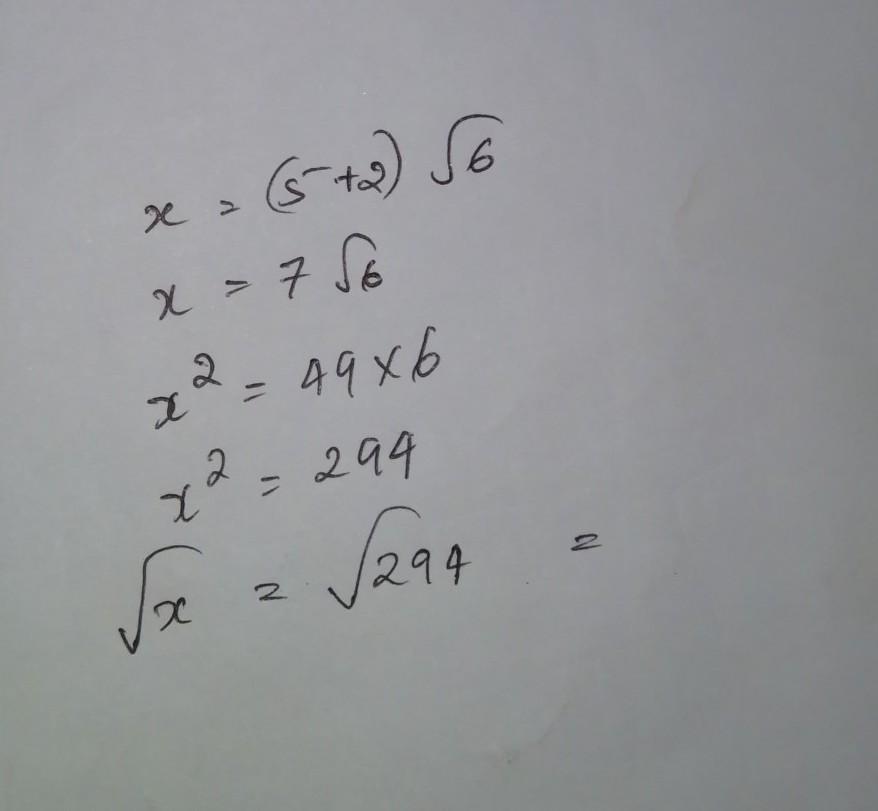 x = (5+2) √6
x = 7 √6
x² = 49 × 6
x² = 294
√x = √294 =